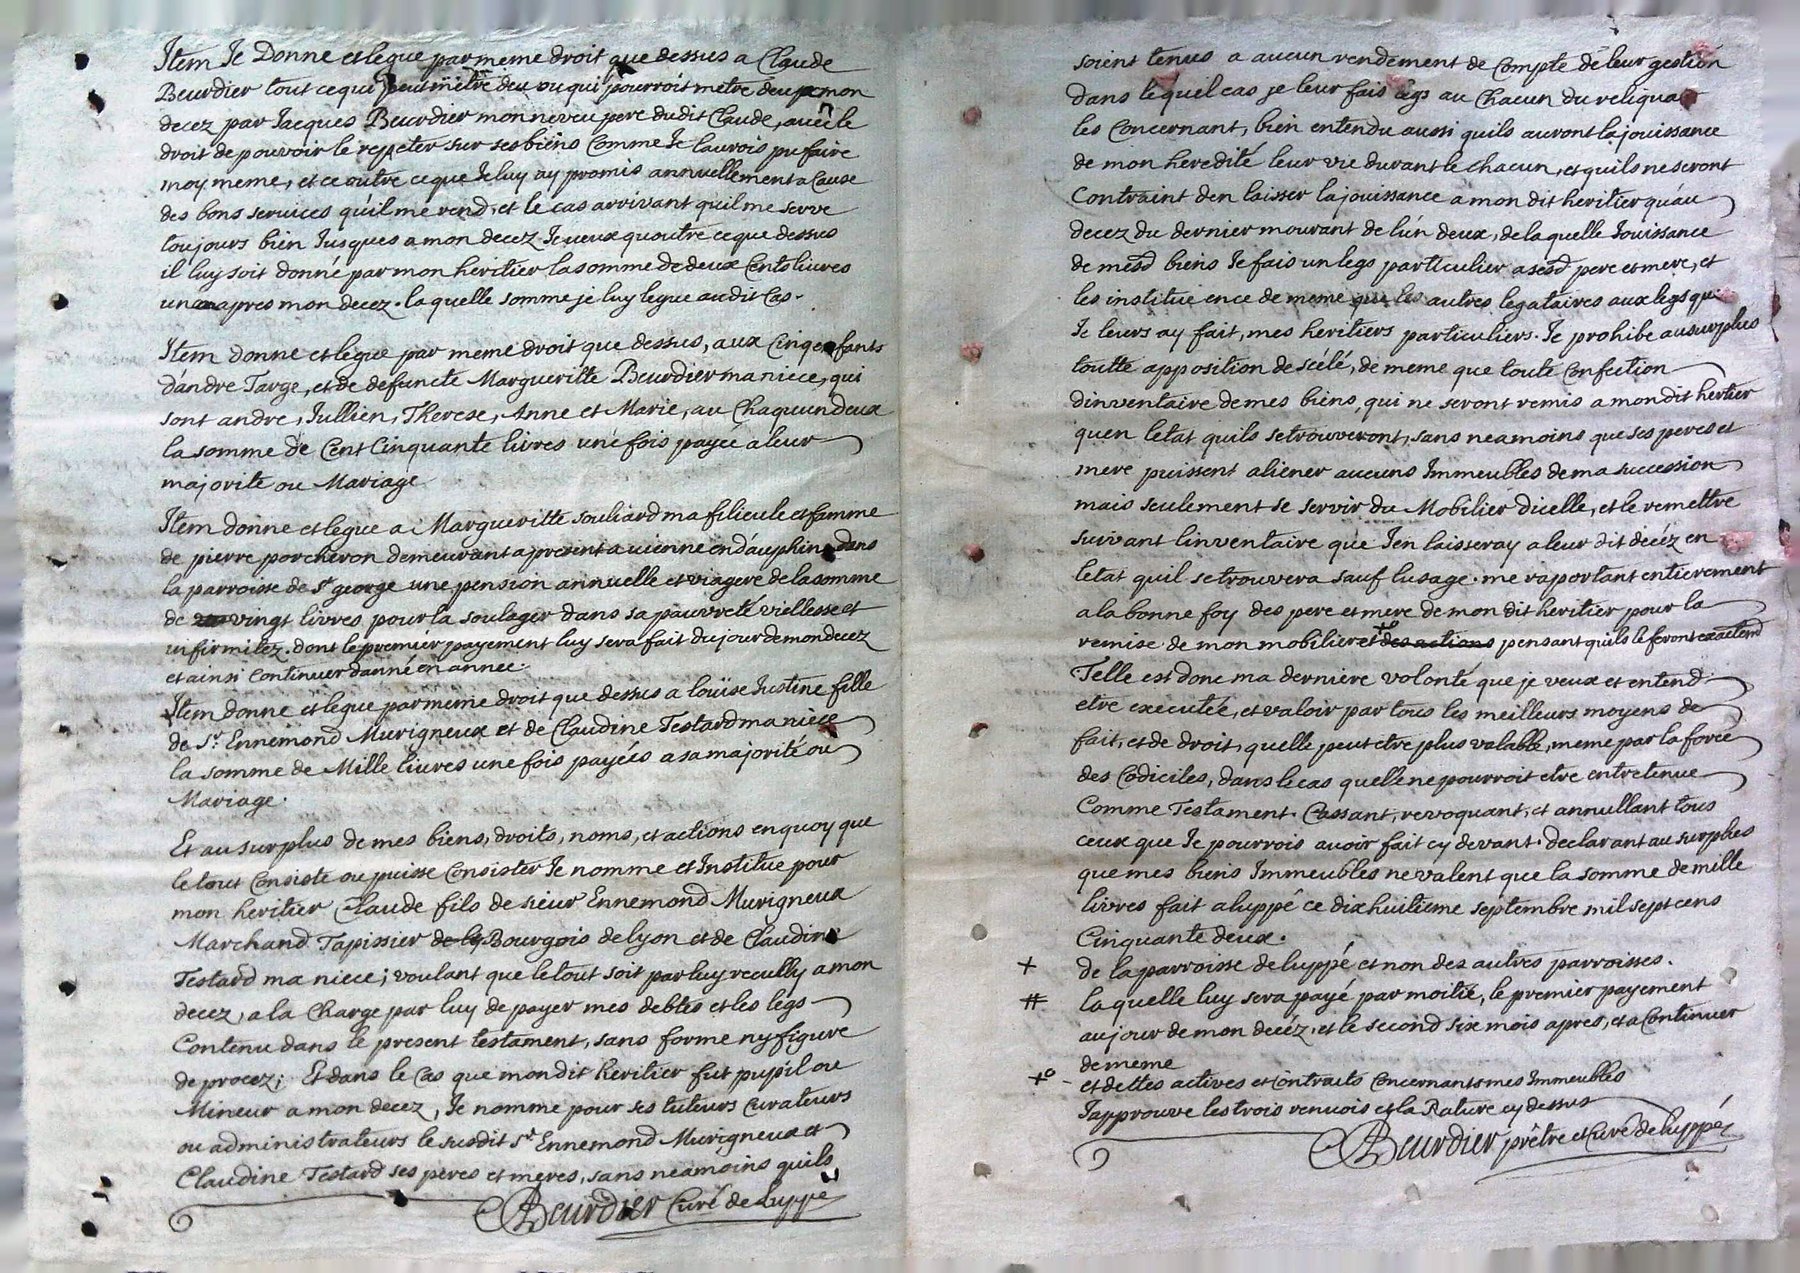 Item Je Donne et legue par meme droit que dessus a Claude
Beurdier tout ce qui peut mètre deu ou qui pourroit metre deu a mon
decez par Jacques Beurdier mon neveu pere dudit Claude, avec le
droit de pouvoir le repeter sur ses biens Comme Je laurois pu faire
moy meme, et ce outre ce que Je luy ay promis annuellement a Cause
des bons services qu'il me rend, et le cas arrivant quil me serve
toujours bien Jusques a mon decez Je veux quoutre ce que dessus
il luy soit donné par mon heritier la somme de deux Cents livres
un an apres mon decez. la quelle somme je luy legue audit Cas.
Item donne et legue par meme droit que dessus, aux Cinq enfants
d'andre Targe, et de defuncte Margueritte Beurdier ma niece, qui
sont andre, Jullien, Therese, Anne et Marie, au Chaquun deux
la somme de Cent Cinquante livres une fois payée a leur
majorite ou Mariage
Item donne et legue a Margueritte souliard ma filieule et famme
de pierre porcheron demeurant apresent a vienne en dauphine dans
la parroisse de St george une pension annuelle et viagere de la somme
de vingt livres pour la soulager dans sa pauvreté viellesse et
infirmitez. dont le premier payement luy sera fait du jour de mon decez
et ainsi Continuer danné en annee.
Item donne et legue par meme droit que dessus a loüise Justine fille
de Sr. Ennemond Murigneux et de Claudine Testard ma niece
la somme de Mille livres une fois payées a sa majorité ou
Mariage.
Et au surplus de mes biens, droits, noms, et actions en quoy que
le tout Consiste ou puisse Consister Je nomme et Institue pour
mon heritier Claude fils de sieur Ennemond Murigneux
Marchand Tapissier de ly Bourgois de lyon et de Claudine
Testard ma niece; voulant que le tout soit par luy recully a mon
decez, a la Charge par luy de payer mes debtes et les legs
Contenu dans le present testament, sans forme ny figure
de procez; Et dans le Cas que mondit heritier fut pupil ou
Mineur a mon decez, Je nomme pour ses tuteurs Curateurs
ou administrateurs le susdit Sr Ennemond Murigneux et
Claudine Testard ses peres et meres, sans neamoins quils
Beurdier Curé de Luppé
soient tenus a aucun rendement de Compte de leur gestion
dans lequel cas je leur fais legs au Chacun du reliqua
les Concernant, bien entendu aussi quils auront la jouissance
de mon heredité leur vie durant le Chacun, et quils ne seront
Contraint den laisser la jouissance a mon dit heritier quau
decez du dernier mourant de lún deux, de la quelle Jouissance
de mesd biens Je fais un legs particulier a sesd pere et mere, et
les institue en ce de meme que les autres legataires aux legs que
Je leurs ay fait, mes heritiers particuliers. Je prohibe au surplus
toutte apposition de scélé, de meme que toute Confection
dinventaire de mes biens, qui ne seront remis a mon dit heritier
quen letat quils se trouveront, sans neamoins que ses peres et
mere puissent aliener aucuns Immeubles de ma succession
mais seulement se servir du Mobilier d'icelle, et le remettre
suivant linventaire que Jen laisseray a leur dit décéz en
letat quil se trouvera sauf lusage. me raportant entierement
a la bonne foy des pere et mere de mon dit heritier pour la
remise de mon mobilier et des actions pensant quils le feront exactemt
Telle est donc ma derniere volonté que je veux et entend
etre executée, et valoir par tous les meilleurs moyens de
fait, et de droit, quelle peut etre plus valable, meme par la force
des Codiciles, dans le cas quelle ne pourroit etre entretenue
Comme Testament. Cassant, revoquant, et annullant tous
ceux que Je pourrois avoir fait cy devant. declarant au surplus
que mes biens Immeubles ne valent que la somme de mille
livres fait a luppé ce dixhuitieme septembre mil sept cens
Cinquante deux.
+ de la parroisse de luppé et non des autres parroisses.
# la quelle luy sera payé par moitié, le premier payement
au jour de mon decéz, et le second six mois apres, et a Continuer
de meme
+o - et dettes actives et Contraits Concernants mes Immeubles
Japprouve les trois renvois et la Rature cy dessus
Beurdier prêtre et Curé de luppé